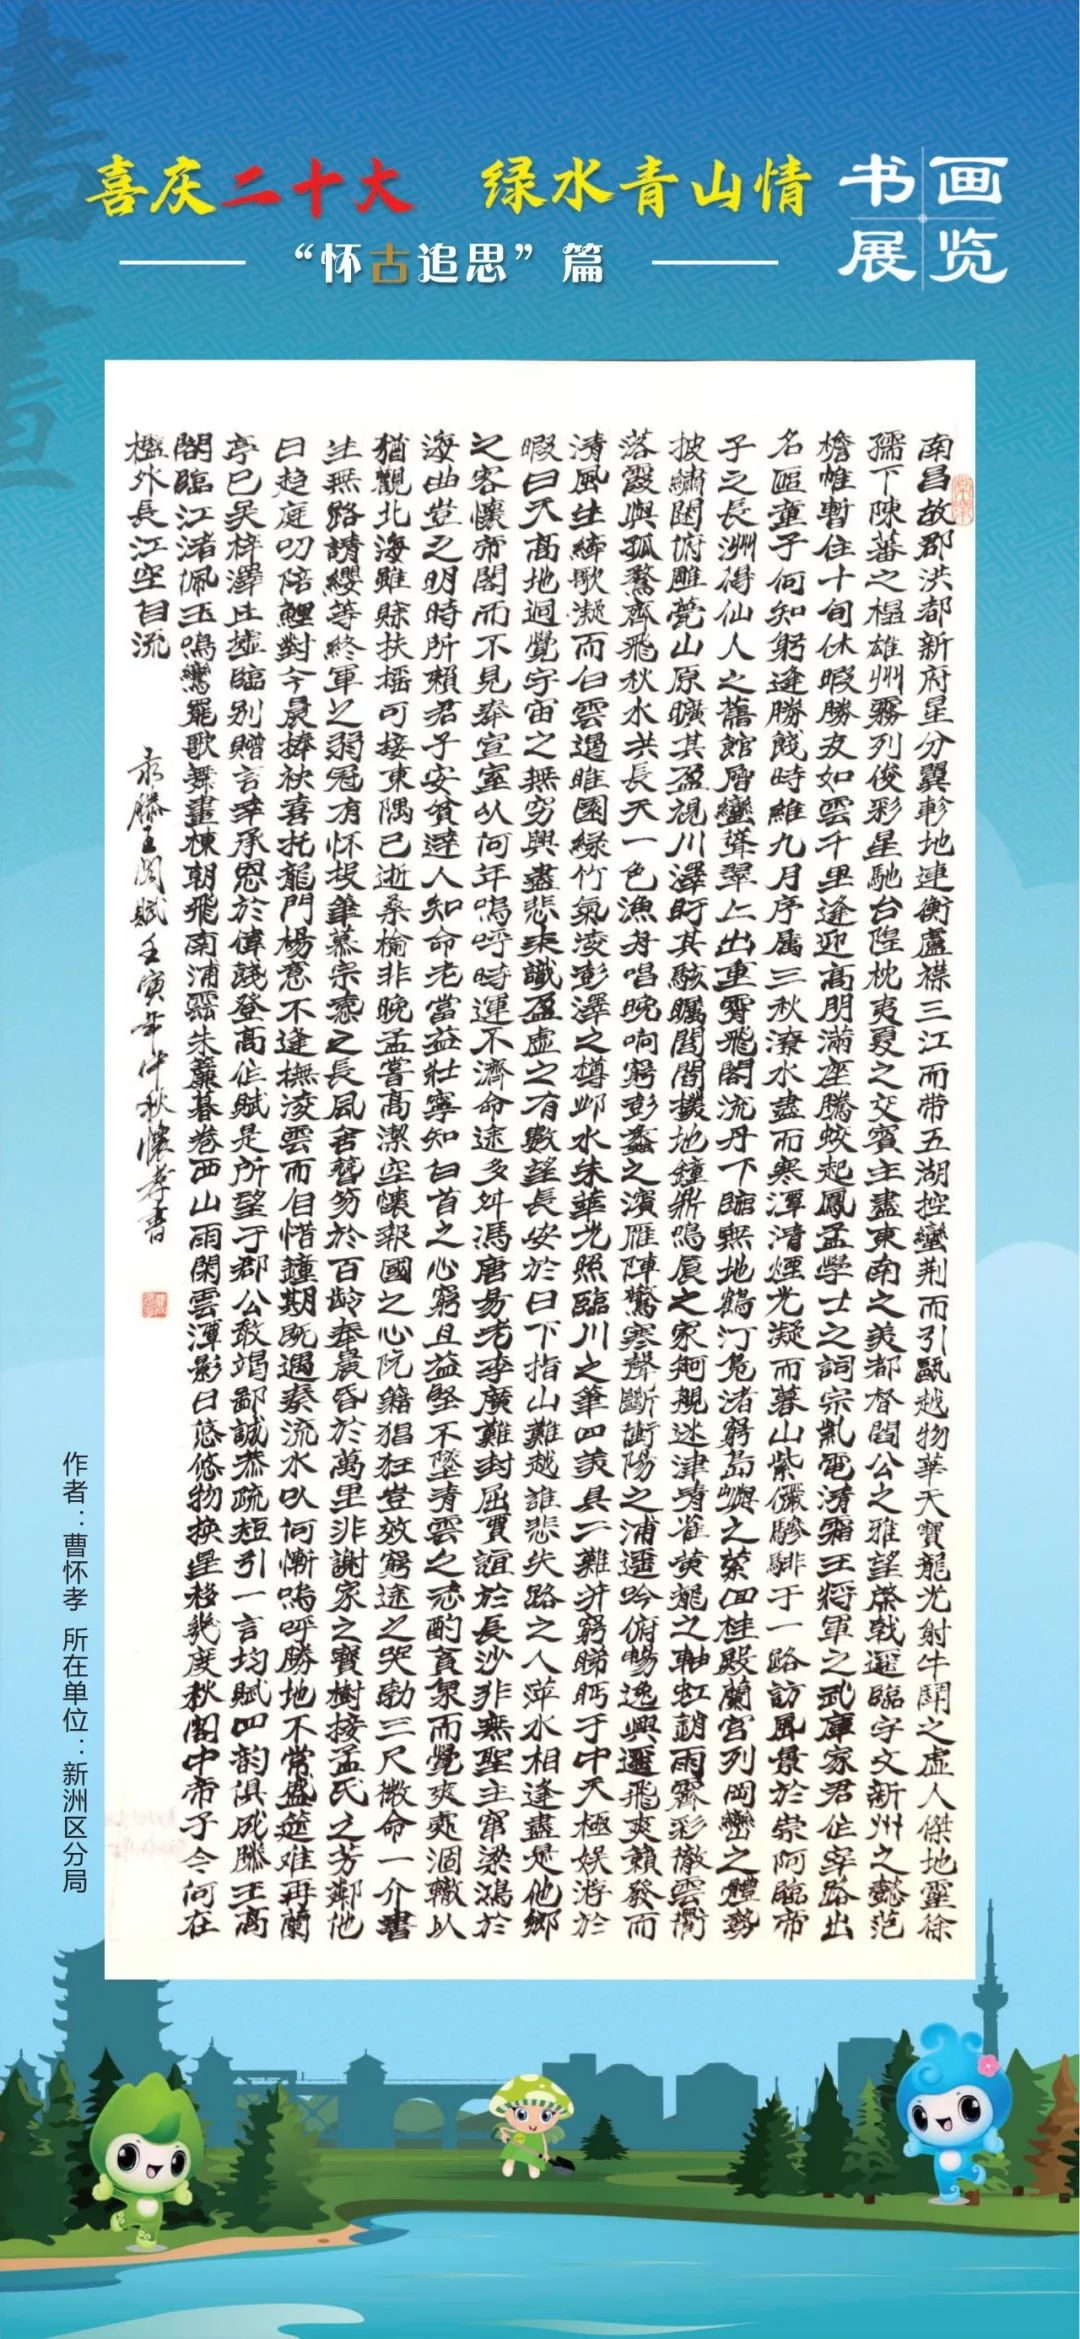 喜庆二十大 绿水青山情
书画展览
“怀古追思”篇
南昌故郡洪都新府星分翼軫地連衡廬襟三江而带五湖控蠻荆而引甌越物華天寶龍光射牛鬥之虚人傑地靈徐
孺下陳蕃之榻雄州霧列俊彩星馳台隍枕夷夏之交賓主盡東南之美都督閻公之雅望棨戟遥臨宇文新州之懿范
檐帷暫住十旬休暇勝友如雲千里逢迎高朋滿座騰蛟起鳳孟學士之詞宗紫電清霜王將軍之武庫家君作宰路出
名區童子何知躬逢勝餞時維九月序属三秋潦水盡而寒潭清煙光凝而暮山紫儼驂騑于一路訪風景於崇阿臨帝
子之長洲得仙人之舊館層巒聳翠上出重霄飛閣流丹下臨無地鶴汀鳧渚窮島嶼之萦回桂殿蘭宫列岡巒之體勢
披繡闥俯雕甍山原曠其盈視川澤盱其駭矚閭閻撲地鐘鼎鳴食之家舸艦迷津青雀黄龍之軸虹銷雨霽彩徹雲衢
落霞與孤鶩齊飛秋水共長天一色漁舟唱晚响窮彭蠡之濱雁陣驚寒聲斷衡陽之浦遥吟俯暢逸興遄飛爽籟發而
清風生纖歌凝而白雲遏睢園绿竹氣凌彭澤之樽鄴水朱華光照臨川之筆四美具二難并窮睇眄于中天極娱游於
暇日天高地迥覺宇宙之無窮興盡悲来識盈虚之有數望長安於日下指山難越誰悲失路之人萍水相逢盡是他鄉
之客懷帝閽而不見奉宣室以何年嗚呼時運不濟命途多舛馮唐易老李廣難封屈賈誼於長沙非無聖主竄梁鴻於
海曲豈乏明時所賴君子安貧達人知命老當益壯寧知白首之心窮且益堅不墜青雲之志酌貪泉而覺爽處涸轍以
猶觀北海雖賒扶摇可接東隅已逝桑榆非晚孟嘗高潔空懷報國之心阮籍猖狂豈效窮途之哭勃三尺微命一介書
生無路請纓等終軍之弱冠有怀投筆慕宗慤之長風舍簪笏於百龄奉晨昏於萬里非謝家之寶樹接孟氏之芳鄰他
日趋庭叨陪鯉對今晨捧袂喜托龍門楊意不逢撫凌雲而自惜鐘期既遇奏流水以何慚嗚呼勝地不常盛筵难再蘭
亭已矣梓澤丘墟臨别贈言幸承恩於偉餞登高作賦是所望于群公敢竭鄙誠恭疏短引一言均賦四韵俱成滕王高
閣臨江渚佩玉鳴鸞罷歌舞畫棟朝飛南浦雲朱簾暮卷西山雨閑雲潭影日悠悠物换星移幾度秋閣中帝子今何在
檻外長江空自流
录滕王阁賦壬寅年仲秋懷孝書
作者：曹怀孝 所在单位：新洲区分局